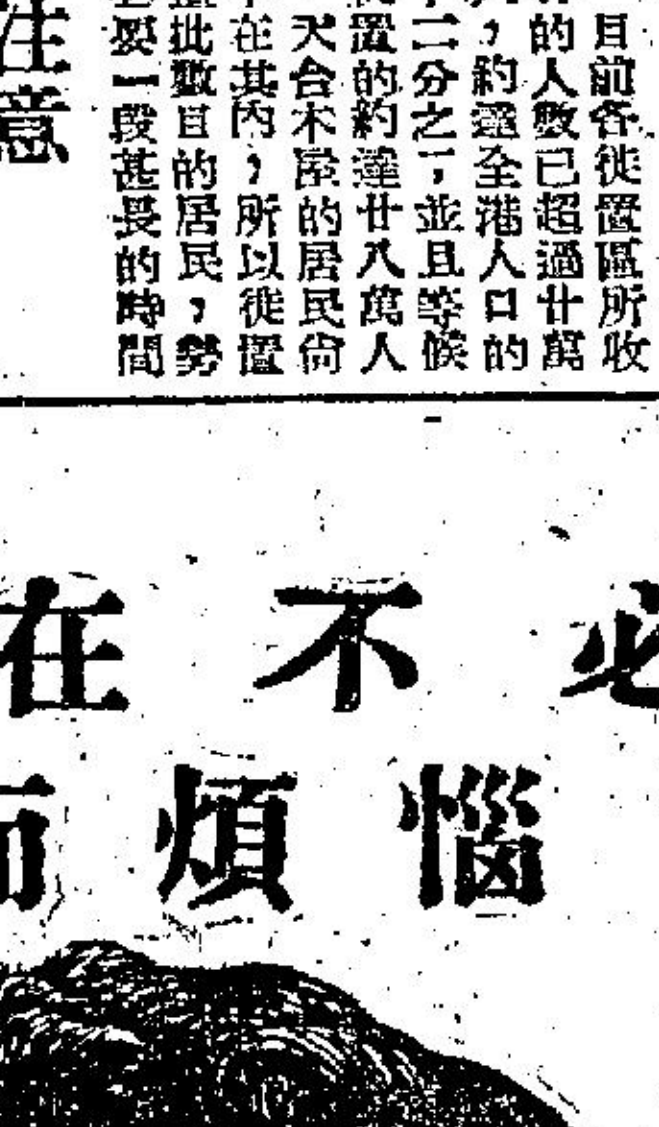 目前各徙置區所收
的人數已超過廿萬
，約達全港人口的
二分之一，並且等候
置的約達廿八萬人
天台木屋的居民尙
在其內，所以徙置
批數目的居民，勢
要一段甚長的時間
注意
必不在
惱煩而